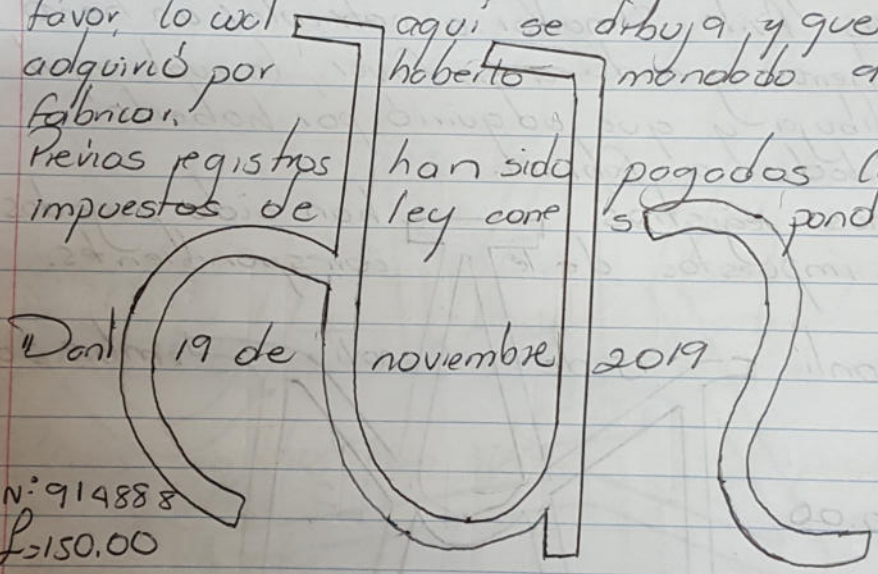 favor, lo wcl aqui se dibuja, y que
adquirió por haberlo mandado a
fabricar.
Previas registros han sido pagados l
impuestos de ley corre s pond
Danl 19 de noviembre 2019
N:914888
£=150.00